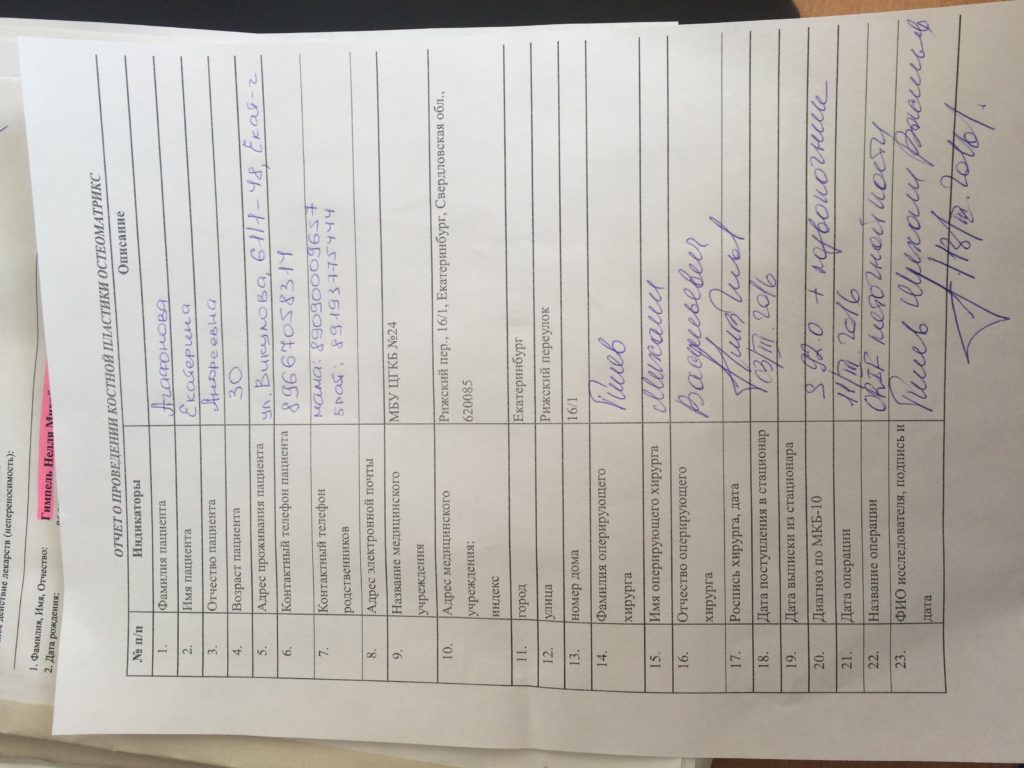 ное действие лекарств (непереносимость):
1. Фамилия, Имя, Отчество: Гимпель Нелля
2. Дата рождения:
ОТЧЕТ О ПРОВЕДЕНИИ КОСТНОЙ ПЛАСТИКИ ОСТЕОМАТРИКС
№ п/п Индикаторы Описание
1. Фамилия пациента Агафонова
2. Имя пациента Екатерина
3. Отчество пациента Андреевна
4. Возраст пациента 30
5. Адрес проживания пациента ул. Викулова, 61/1-48, Екат-г
6. Контактный телефон пациента 89667058314
7. Контактный телефон мама: 89090009657
родственников брат: 89193775444
8. Адрес электронной почты
9. Название медицинского МБУ ЦГКБ №24
учреждения
10. Адрес медицинского Рижский пер., 16/1, Екатеринбург, Свердловская обл.,
учреждения: 620085
индекс
11. город Екатеринбург
12. улица Рижский переулок
13. номер дома 16/1
14. Фамилия оперирующего Гилев
хирурга
15. Имя оперирующего хирурга Михаил
16. Отчество оперирующего Васильевич
хирурга
17. Роспись хирурга, дата
18. Дата поступления в стационар 03/III.2016
19. Дата выписки из стационара
20. Диагноз по МКБ-10 S 92.0 +
21. Дата операции 11/III 2016
22. Название операции CRIF пяточной кости
23. ФИО исследователя, подпись и Гилев Михаил Васильев
дата 18/III.2016г.